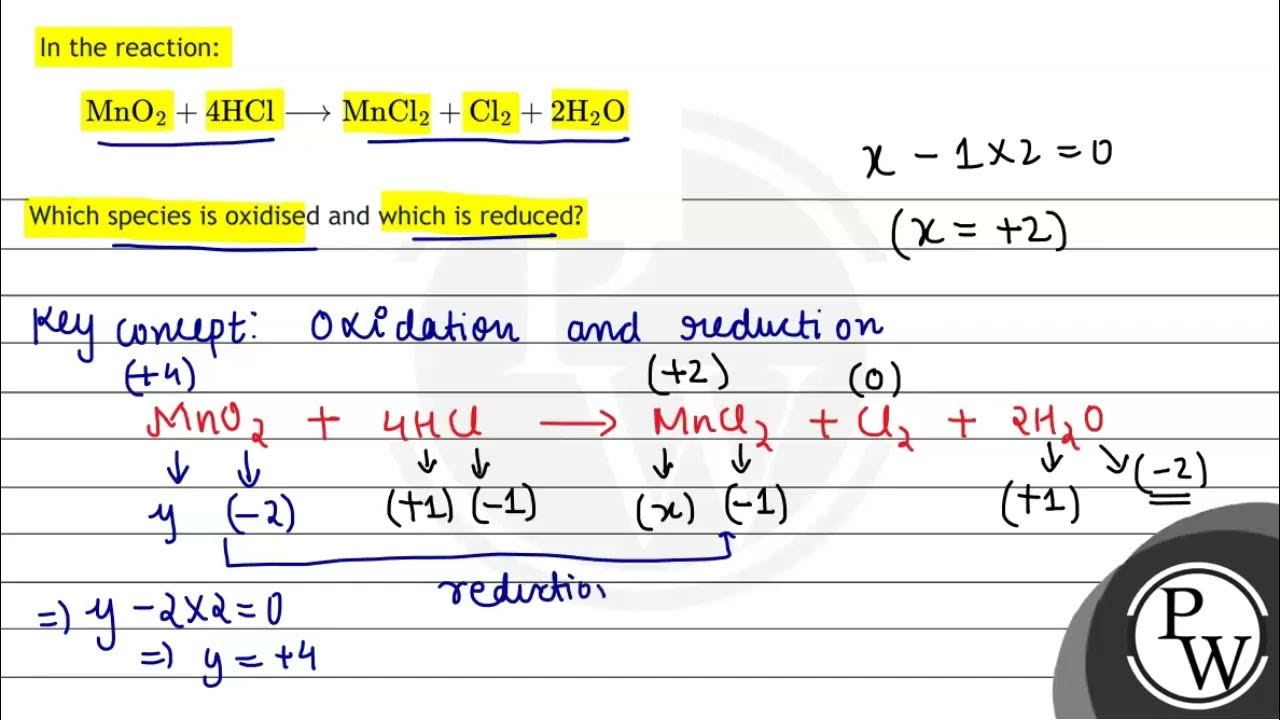 In the reaction:
MnO₂ + 4HCl ⟶ MnCl₂ + Cl₂ + 2H₂O
x - 1×2 = 0
Which species is oxidised and which is reduced?
(x = +2)
Key concept: Oxidation and reduction
(+4) (+2) (0)
MnO₂ + 4HCl → MnCl₂ + Cl₂ + 2H₂O
↓ ↓ ↓ ↓ ↓ ↓ ↓ ↘ (-2)
y (-2) (+1) (-1) (x) (-1) (+1)
reduction
⇒) y - 2×2 = 0
⇒) y = +4
P
W